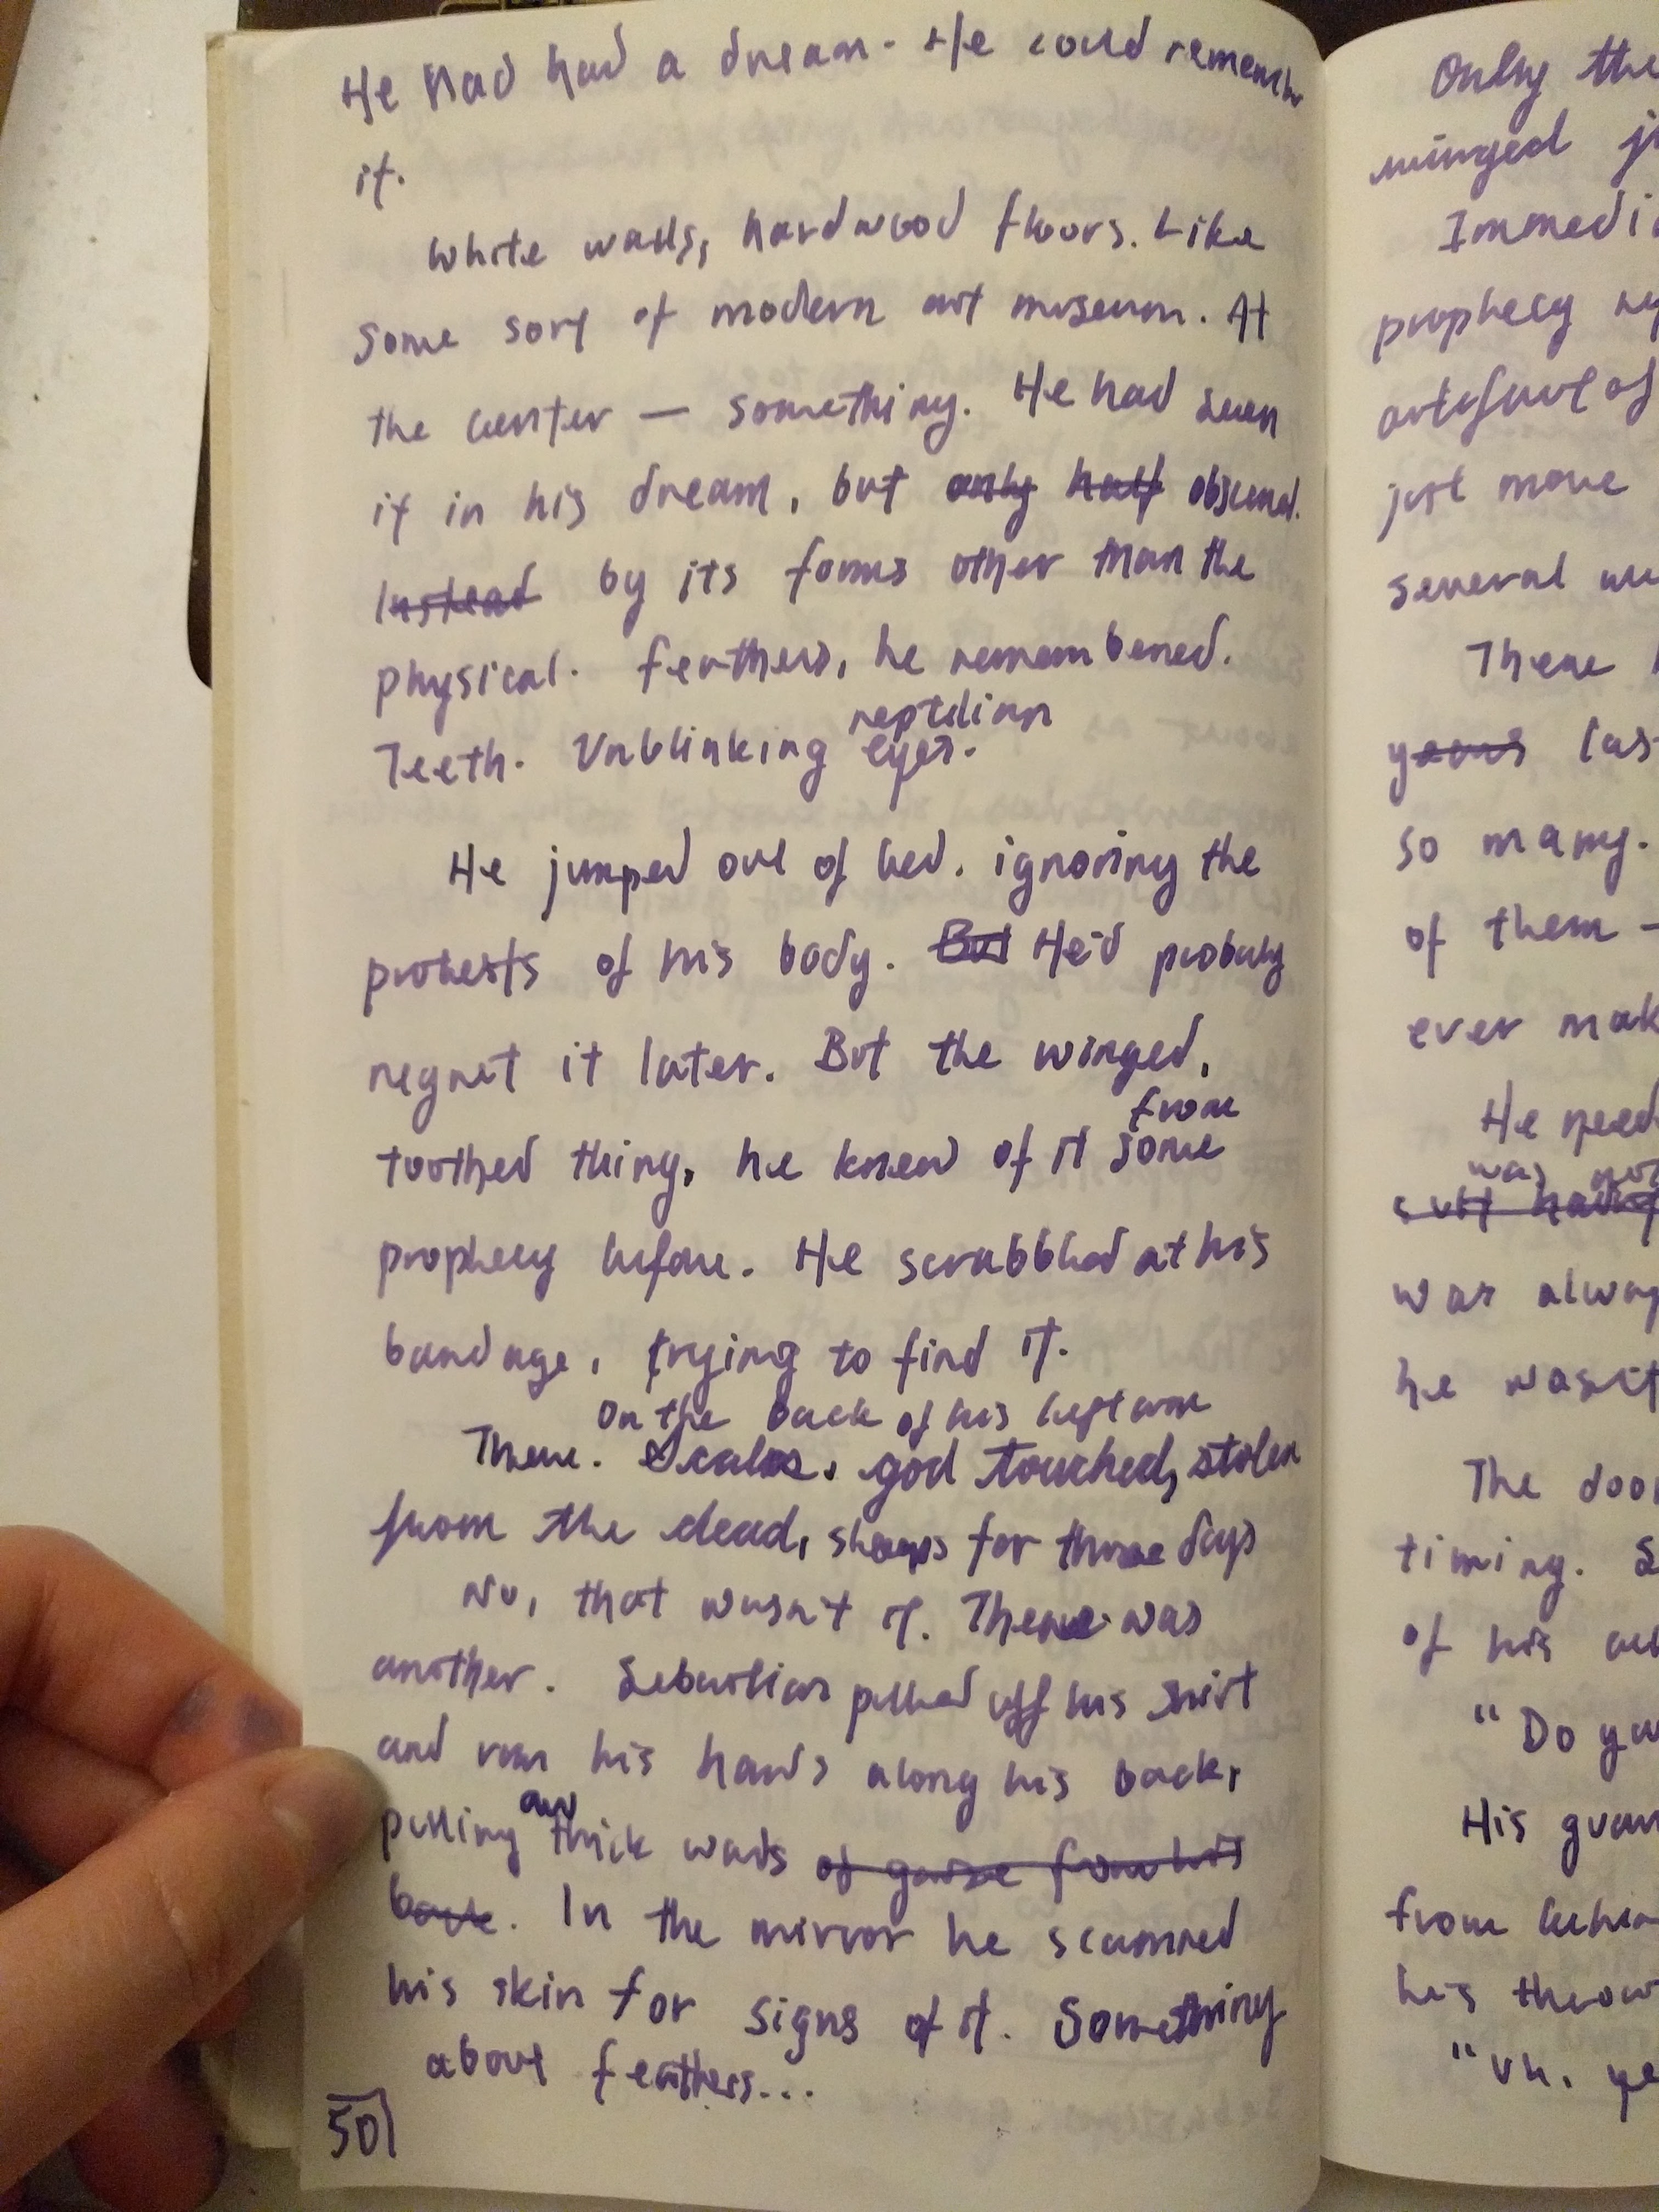 He had had a dream. He could remember
it.
White walls, hardwood floors. Like
some sort of modern art museum. At
the center — something. He had seen
it in his dream, but only half obscured.
Instead by its forms other than the
physical. Feathers, he remembered.
reptilian
Teeth. Unblinking eyes.
He jumped out of bed, ignoring the
protests of his body. But He'd probably
regret it later. But the winged,
from
toothed thing, he knew of it some
prophecy before. He scrabbled at his
bandage, trying to find it.
On the back of his left arm
There. Scales, god touched, stolen
from the dead, sleeps for three days
No, that wasn't it. There was
another. Sebastian pulled off his shirt
and ran his hands along his back,
pulling thick wads of gauze from his
back. In the mirror he scanned
his skin for signs of it. Something
about feathers...
50
Only the
winged
Immedi
prophecy
artefact of
just move
several
There
years las
so many.
of them —
ever mak
He need
was not
still
was alway
he wasn't
The door
timing. S
of his
"Do you
His guar
from behin
his throw
"Uh, ye